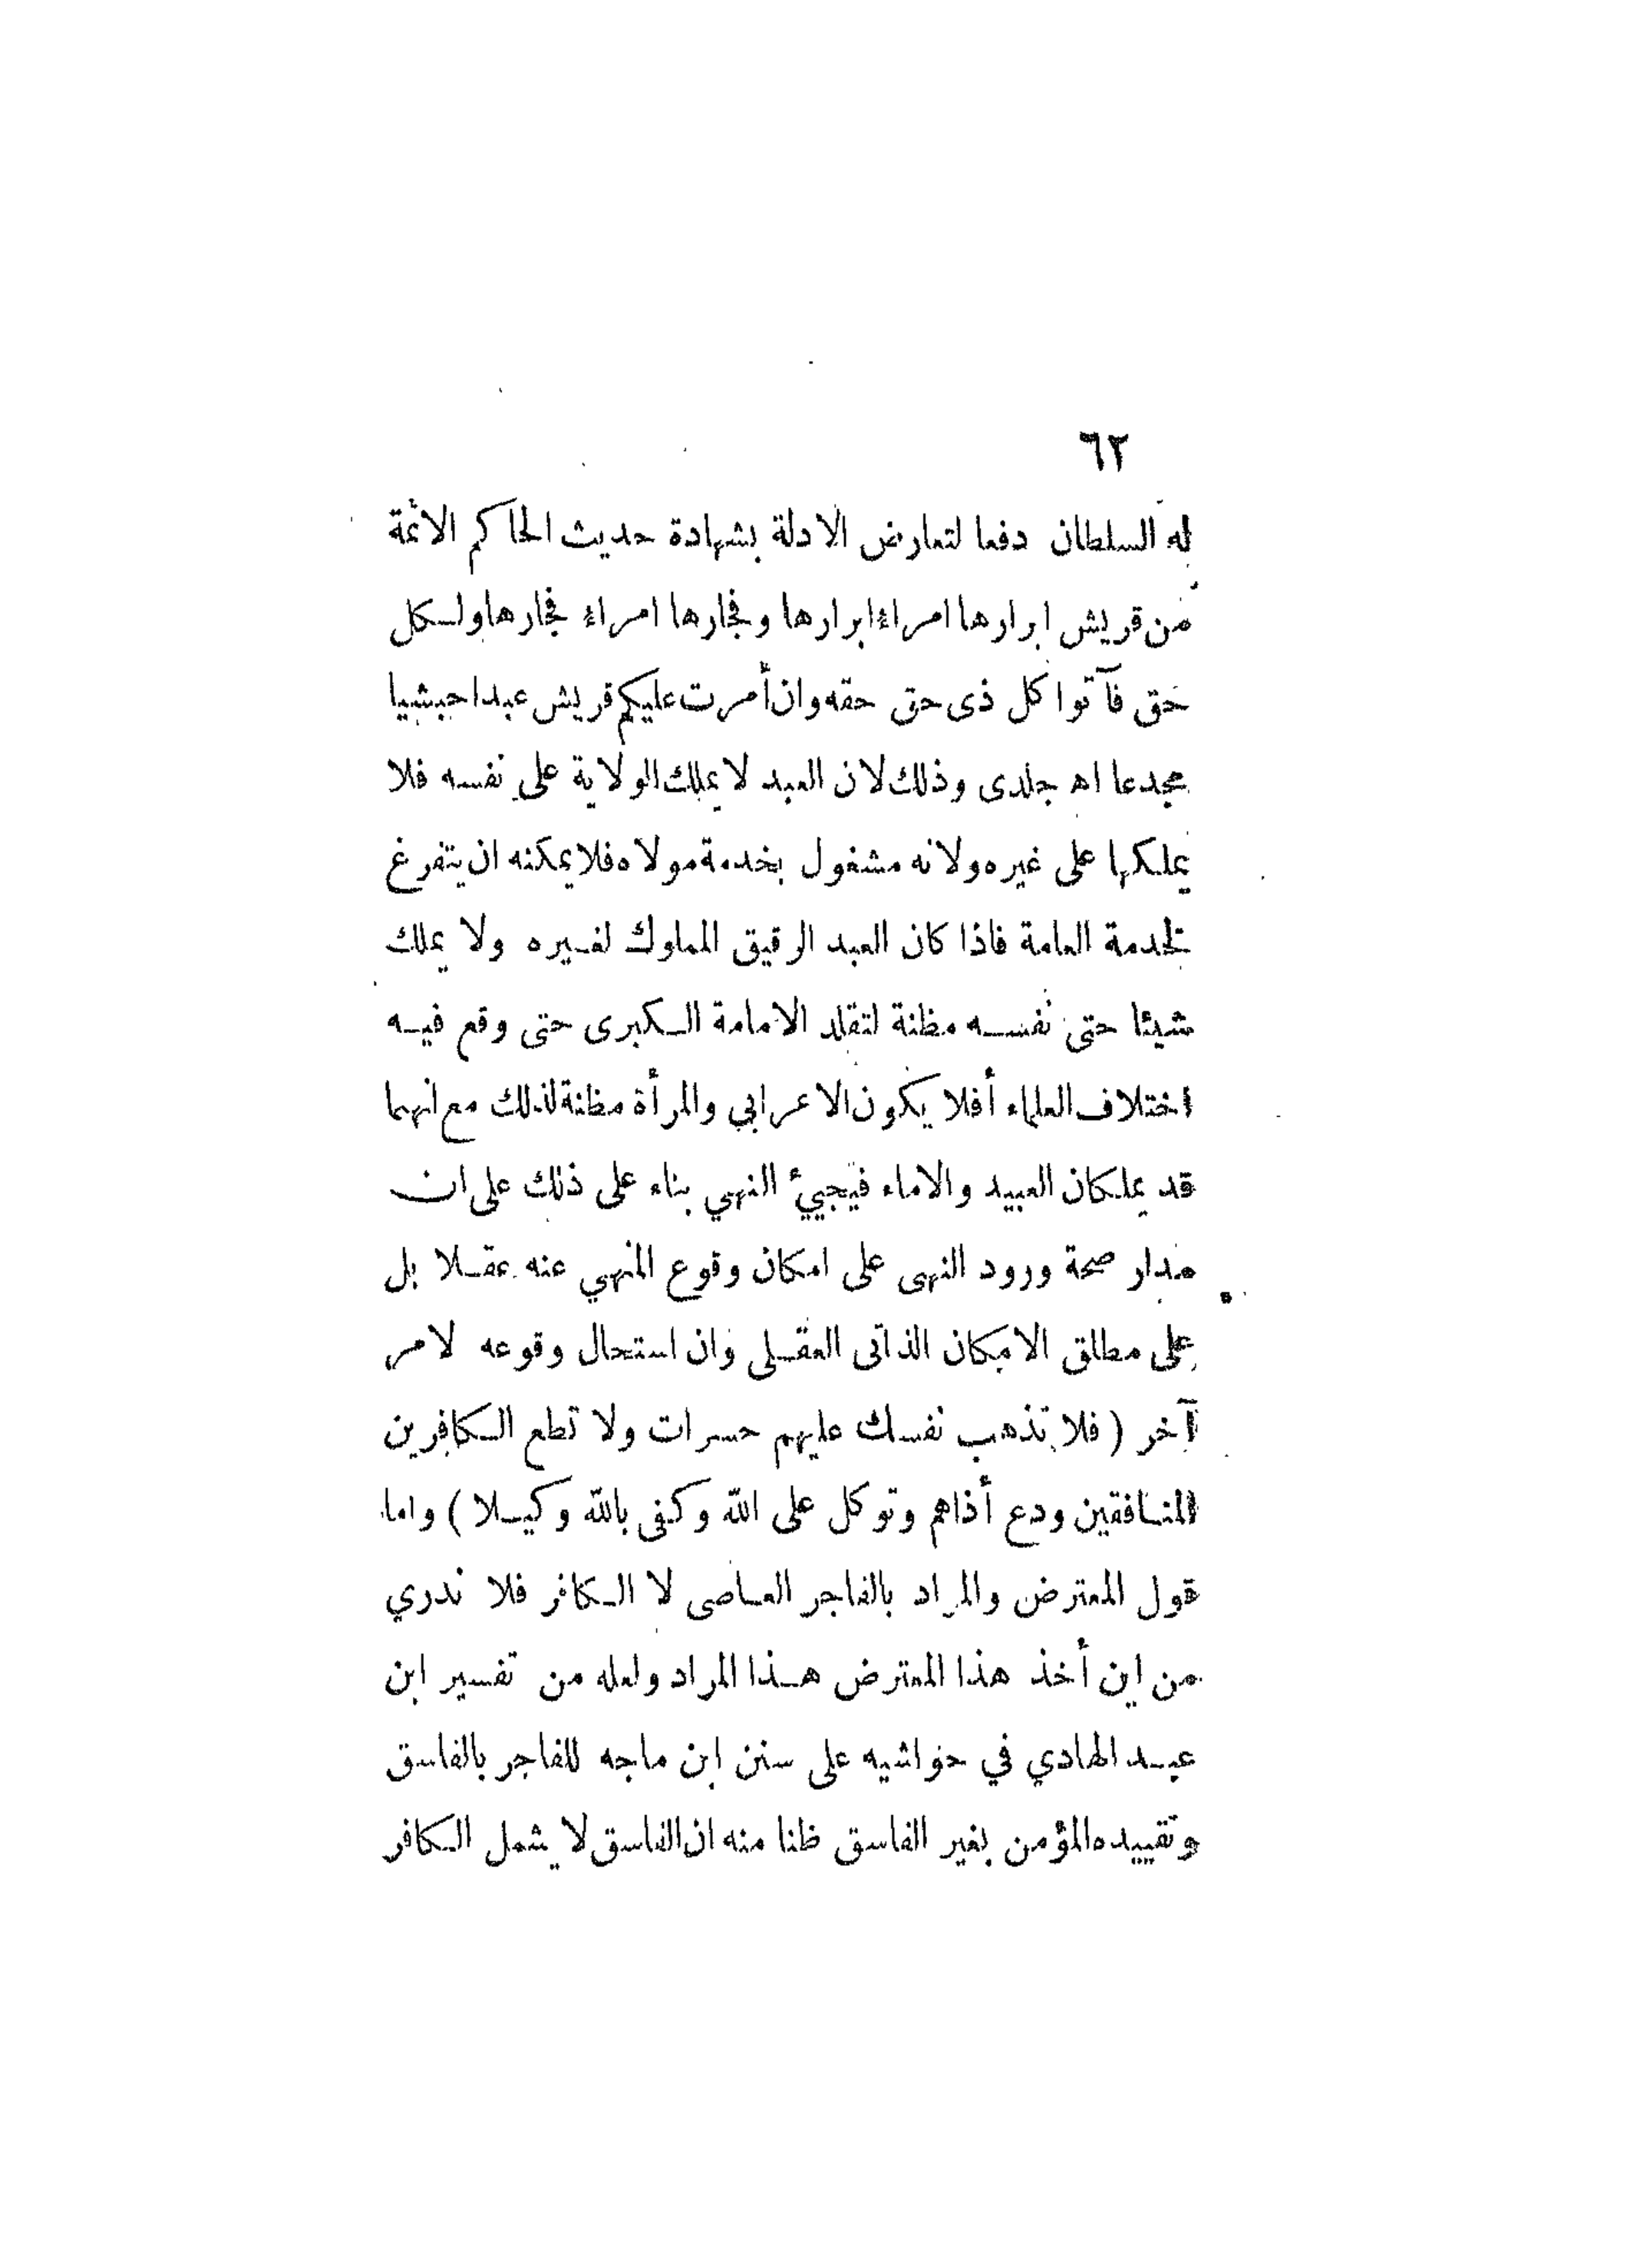 ٦٢
له السلطان دفعا لتعارض الادلة بشهادة حديث الحاكم الائمة
من قريش ابرارها امراء ابرارها وفجارها امراء فجارها ولكل
حق فآتوا كل ذى حق حقه وان أمرت عليكم قريش عبدا حبشيا
مجدعا اه جلدى وذلك لان العبد لا يملك الولاية على نفسه فلا
يملكها على غيره ولانه مشغول بخدمة مولاه فلا يمكنه ان يتفرغ
لخدمة العامة فاذا كان العبد الرقيق المملوك لغيره ولا يملك
شيئا حتى نفسه مظنة لتقلد الامامة الكبرى حتى وقع فيه
اختلاف العلماء أفلا يكون الاعرابي والمرأة مظنة لذلك مع انهما
قد يملكان العبيد والاماء فيجيئ النهي بناء على ذلك على ان
مدار صحة ورود النهى على امكان وقوع المنهي عنه عقلا بل
على مطلق الامكان الذاتى العقلى وان استحال وقوعه لامر
آخر ( فلا تذهب نفسك عليهم حسرات ولا تطع الكافرين
المنافقين ودع أذاهم وتوكل على الله وكفى بالله وكيلا ) واما
قول المعترض والمراد بالفاجر العاصى لا الكافر فلا ندري
من اين أخذ هذا المعترض هذا المراد ولعله من تفسير ابن
عبد الهادي في حواشيه على سنن ابن ماجه للفاجر بالفاسق
وتقييده المؤمن بغير الفاسق ظنا منه ان الفاسق لا يشمل الكافر